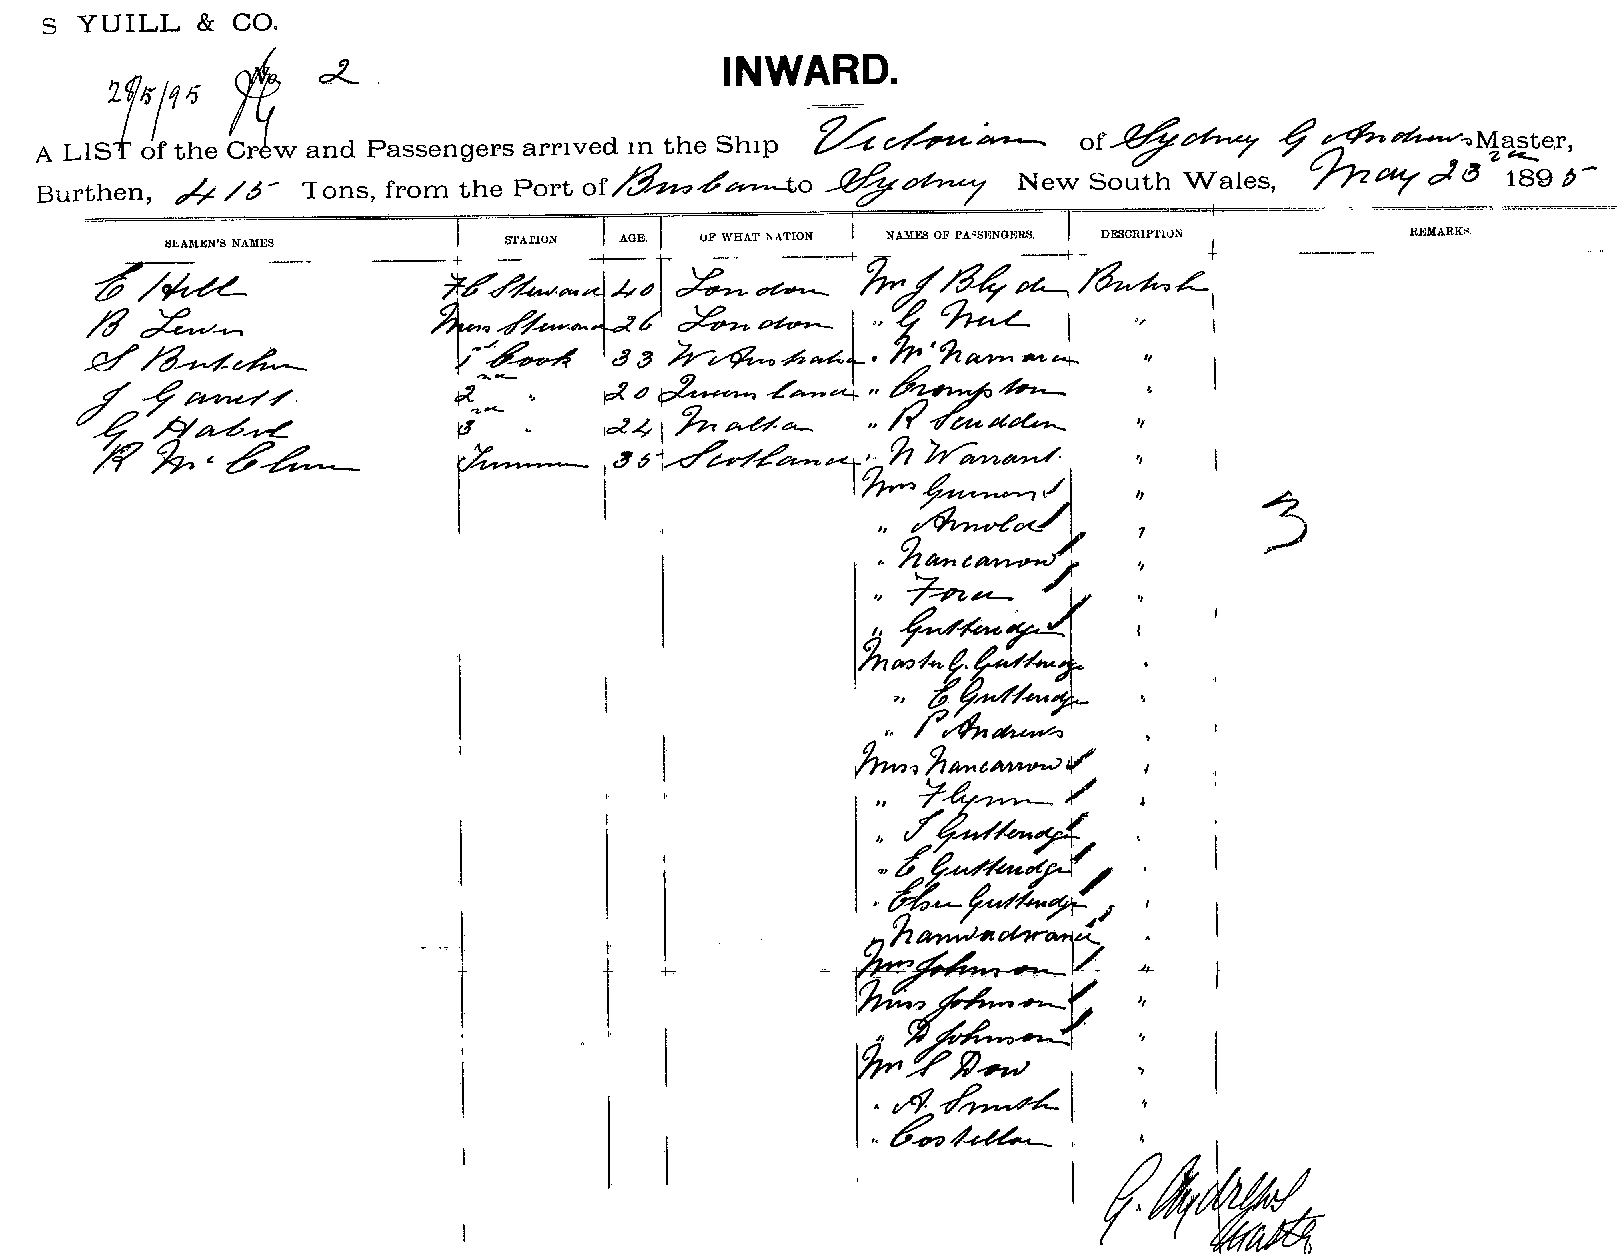 S YUILL & CO.
28/5/95 2
INWARD.
A LIST of the Crew and Passengers arrived in the Ship Victorian of Sydney G Andrews Master,
Burthen, 415 Tons, from the Port of Brisbane to Sydney New South Wales, May 23rd 1895
SEAMEN'S NAMES STATION AGE. OF WHAT NATION NAMES OF PASSENGERS. DESCRIPTION REMARKS.
E Hill FC Steward 40 London Mr J Blyde British
B Lewis Mess Steward 26 London " G "
S Butcher 1st Cook 33 W Australia " McNamara "
J Garrett 2nd " 20 Queensland " Crompton "
G 3rd " 24 Malta " R Scudder "
R Mc Trimmer 35 Scotland " N Warrant "
Mrs "
" Arnold "
" Nancarrow "
" Ford "
" Gutteridge "
Master G. Gutteridge "
" E Gutteridge "
" P Andrews "
Miss Nancarrow "
" Flynn "
" S Gutteridge "
" E Gutteridge "
" Elsie Gutteridge "
" "
Mrs Johnson "
Miss Johnson "
" D Johnson "
Mr S Dow "
" A. Smith "
" Costelloe "
3
G. Andrews
Master